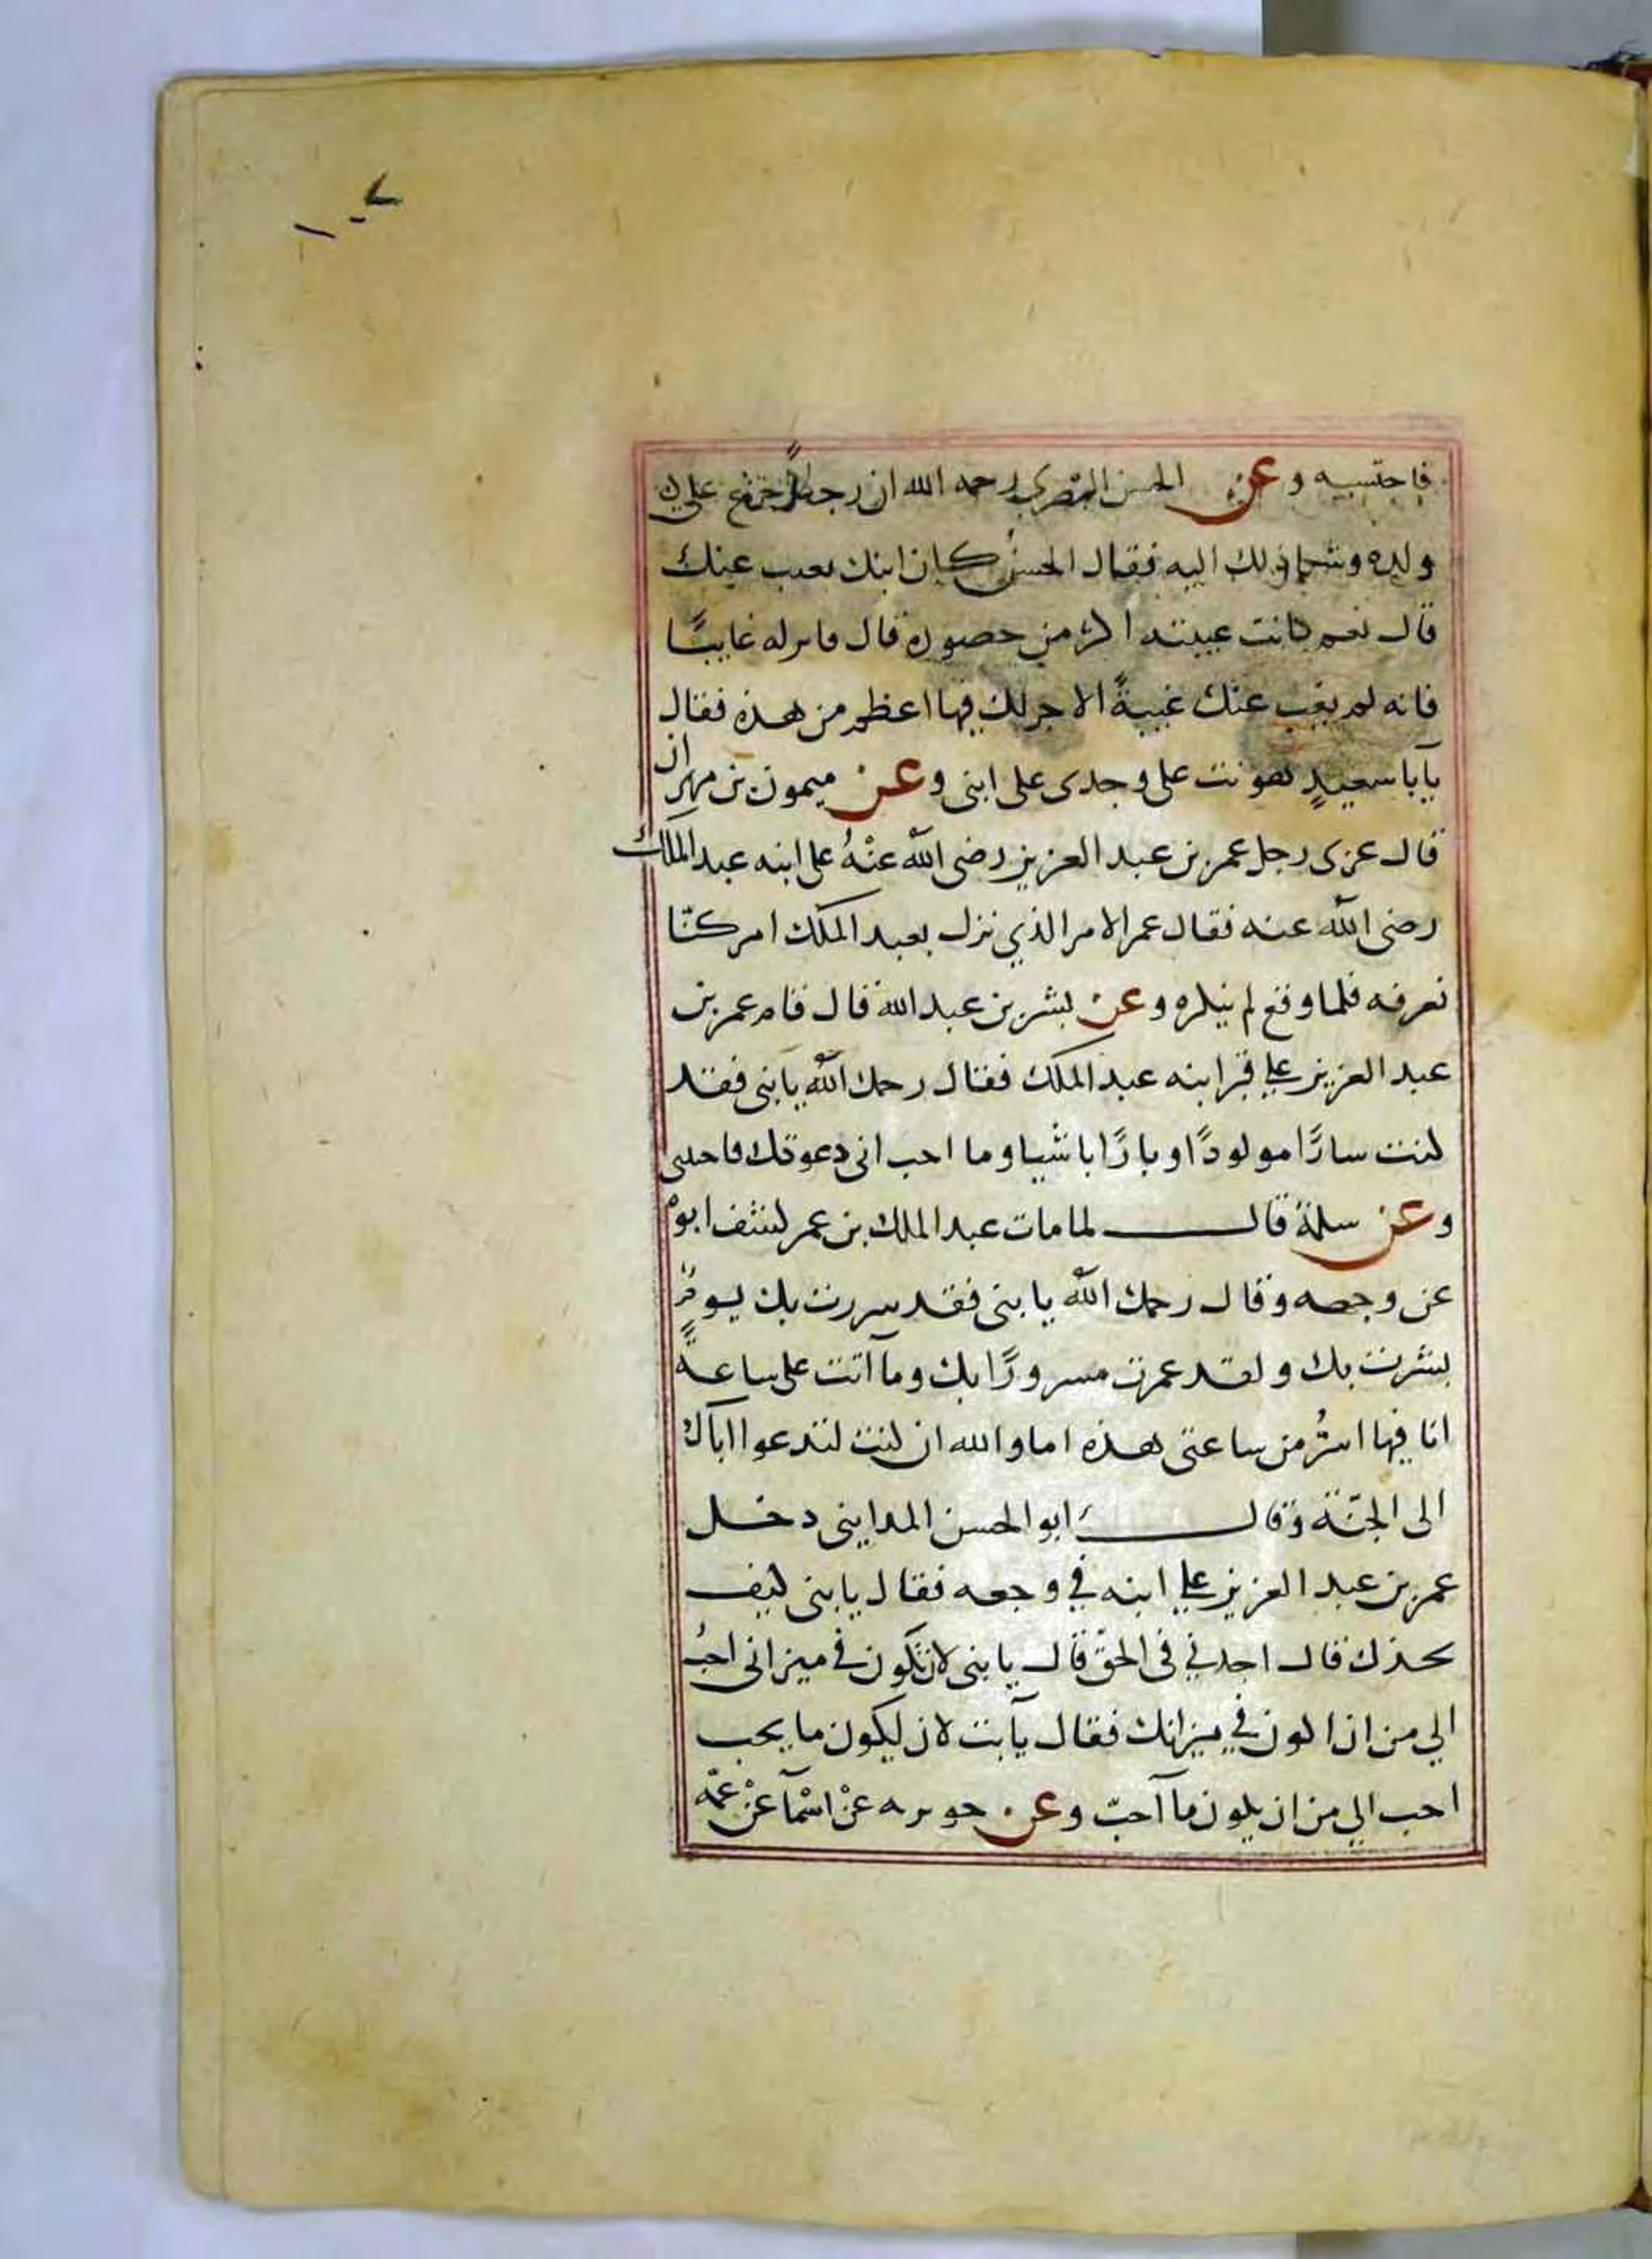 فاحتسبه وعن الحسن البصري رحمه الله ان رجلاً جزع على
ولده وشكا ذلك اليه فقال الحسن كان ابنك يغيب عنك
قال نعم كانت غيبته اكثر من حضوره قال فاتركه غايبًا
فانه لم يغب عنك غيبةً الاجر لك فيها اعظم من هذه فقال
يآبا سعيدٍ هونت على وجدى على ابنى وعن ميمون بن مهران
قال عزى رجل عمر بن عبد العزيز رضى الله عنْهُ على ابنه عبد الملك
رضى الله عنه فقال عمر الامر الذي نزل بعبد الملك امر كنّا
نعرفه فلما وقع لم ننكره وعن بشر بن عبد الله قال قام عمر بن
عبد العزيز علي قبر ابنه عبد الملك فقال رحمك الله يا بنى فقد
كنت سارًّا مولودًا وبارًّا ناشيا وما احب انى دعوتك فاجبتنى
وعن سلمة قال لما مات عبد الملك بن عمر كشف ابوه
عن وجهه وقال رحمك الله يا بنى فقد سررت بك يوم
بشرت بك ولقد عمرت مسرورًا بك وما آتت على ساعةً
انا فيها اسرُّ من ساعتى هذه اما والله ان كنت لتدعوا اباك
الى الجنّة وقال ابو الحسن المداينى دخل
عمر بن عبد العزيز علي ابنه في وجعه فقال يا بنى كيف
تجدك قال اجدني فى الحق قال يا بنى لان تكون في ميزانى احبُ
الي من ان اكون في ميزانك فقال يآبت لان ليكون ما يحب
احب الي من ان يكون ما آحبّ وعن جويريه عنْ اسْمآ عنْ عمّه